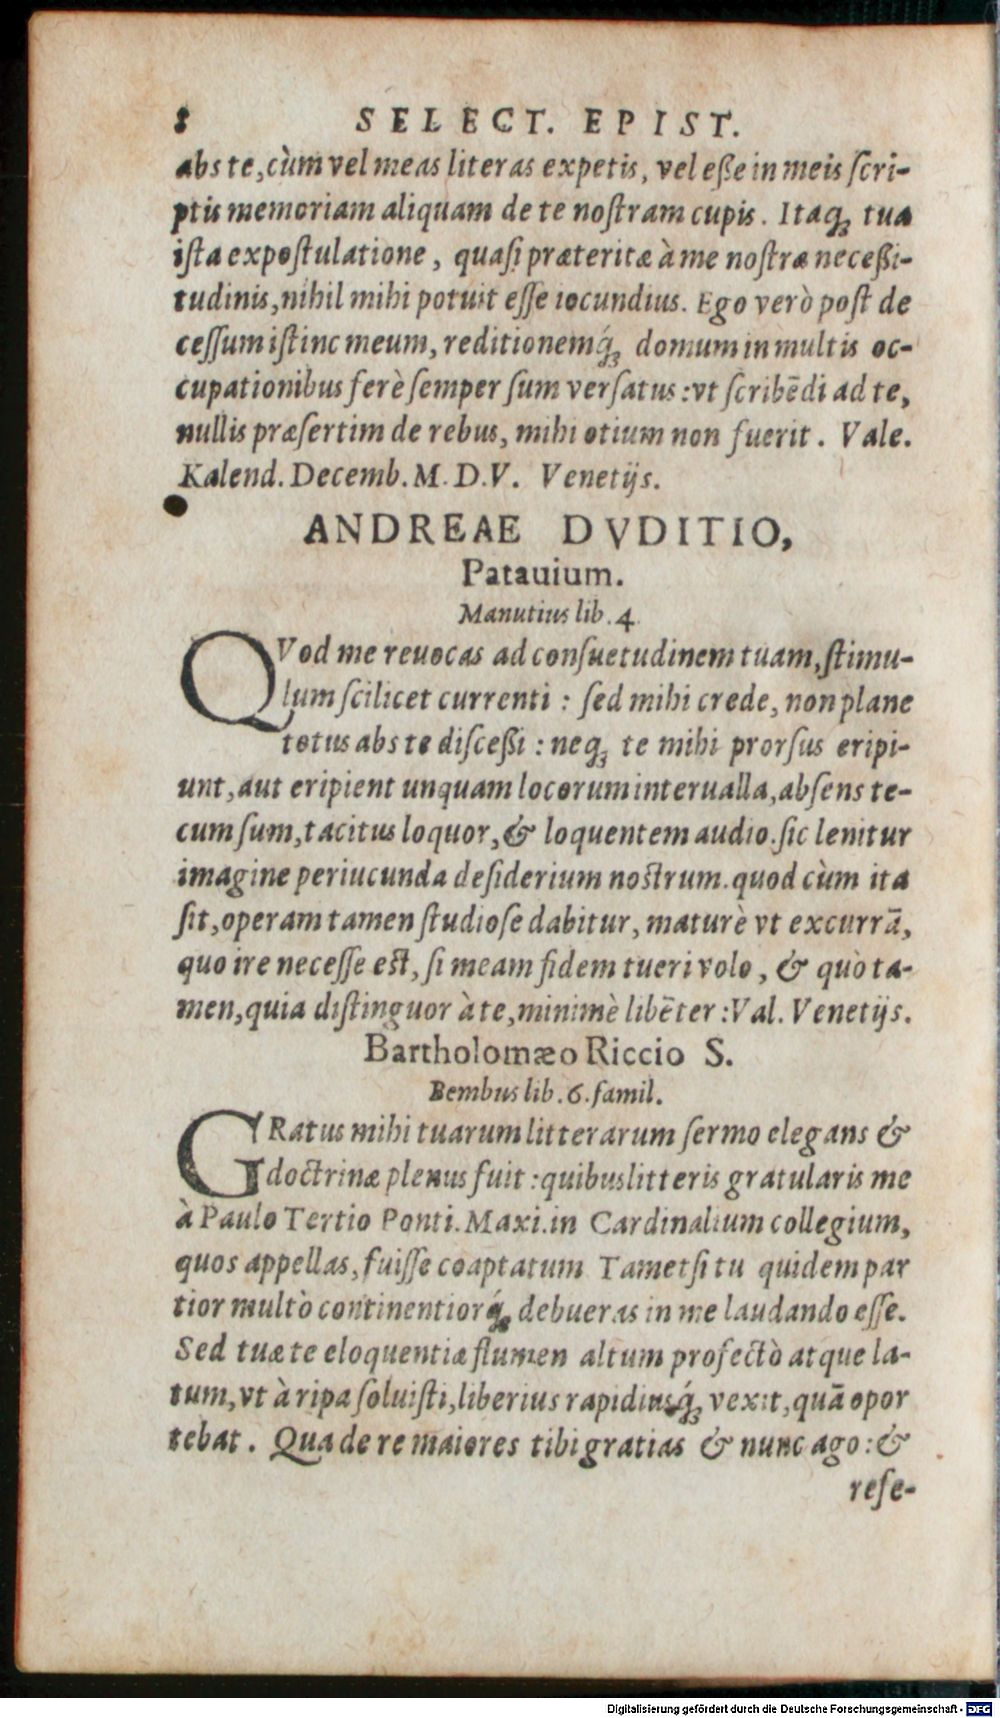 8 SELECT. EPIST.
abs te, cùm vel meas literas expetis, vel eße in meis ſcri-
ptis memoriam aliquam de te noſtram cupis. Itaq; tua
iſta expoſtulatione, quaſi præteritæ à me noſtræ neceßi-
tudinis, nihil mihi potuit eſſe iocundius. Ego verò poſt de
ceſſum iſtinc meum, reditionemq́; domum in multis oc-
cupationibus ferè ſemper ſum verſatus: vt ſcribēdi ad te,
nullis præſertim de rebus, mihi otium non fuerit. Vale.
Kalend. Decemb. M. D. V. Venetijs.
ANDREAE DVDITIO,
Patauium.
Manutius lib. 4.
QVod me reuocas ad conſuetudinem tuam, ſtimu-
lum ſcilicet currenti: ſed mihi crede, non plane
totus abs te diſceßi: neq; te mihi prorſus eripi-
unt, aut eripient unquam locorum interualla, abſens te-
cum ſum, tacitus loquor, & loquentem audio. ſic lenitur
imagine periucunda deſiderium nostrum. quod cùm ita
ſit, operam tamen ſtudioſe dabitur, maturè vt excurrā,
quo ire neceſſe est, ſi meam fidem tueri volo, & quò ta-
men, quia diſtinguor à te, minimè libēter: Val. Venetijs.
Bartholomæo Riccio S.
Bembus lib. 6. famil.
GRatus mihi tuarum litterarum ſermo elegans &
doctrinæ plenus fuit: quibus litteris gratularis me
à Paulo Tertio Ponti. Maxi. in Cardinalium collegium,
quos appellas, fuiſſe coaptatum Tametſi tu quidem par
tior multò continentiorq́; debueras in me laudando eſſe.
Sed tuæ te eloquentiæ flumen altum profectò atque la-
tum, vt à ripa ſoluiſti, liberius rapidiusq́; vexit, quā opor
tebat. Qua de re maiores tibi gratias & nunc ago: &
refe-
Digitalisierung gefördert durch die Deutsche Forschungsgemeinschaft - DFG